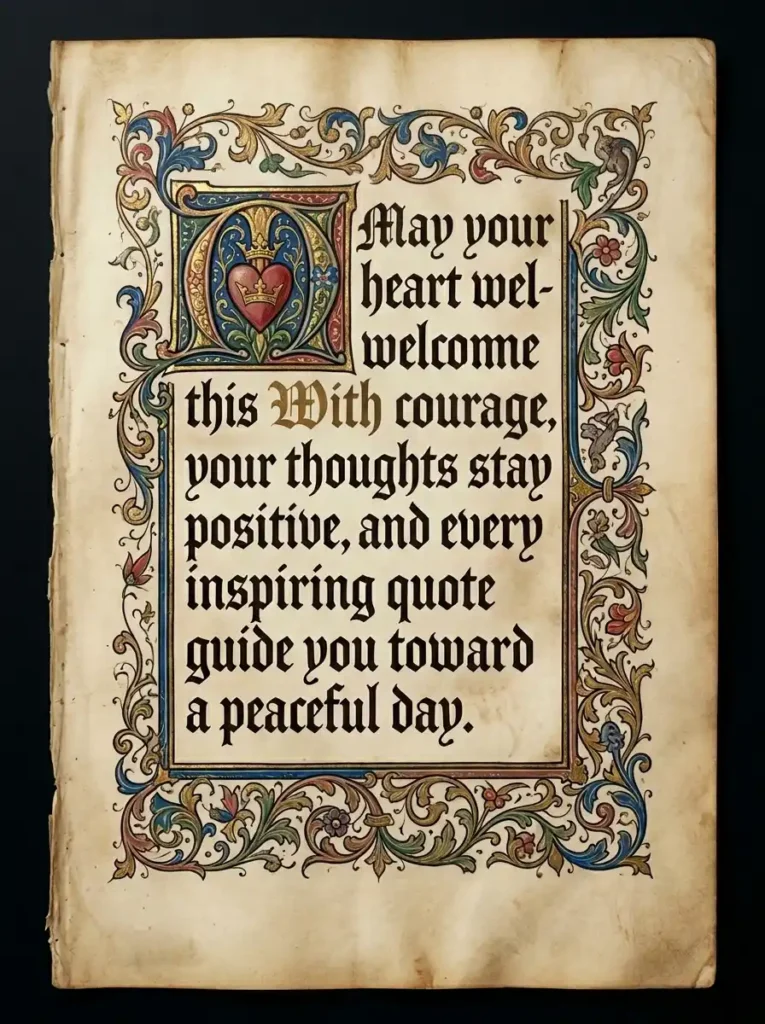 May your
heart wel-
welcome
this With courage,
your thoughts stay
positive, and every
inspiring quote
guide you toward
a peaceful day.